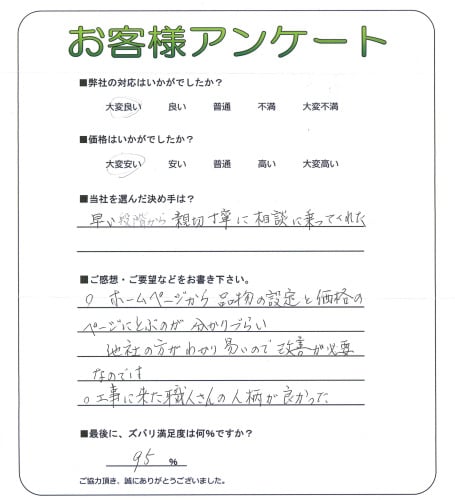 お客様アンケート
■弊社の対応はいかがでしたか？
大変良い 良い 普通 不満 大変不満
■価格はいかがでしたか？
大変安い 安い 普通 高い 大変高い
■当社を選んだ決め手は？
早い段階から親切丁寧に相談に乗ってくれた
■ご感想・ご要望などをお書き下さい。
○ ホームページから品物の設定と価格の
ページにとぶのが分かりづらい
他社の方がわかり易いので改善が必要
なのでは
○工事に来た職人さんの人柄が良かった
■最後に、ズバリ満足度は何％ですか？
95 ％
ご協力頂き、誠にありがとうございました。